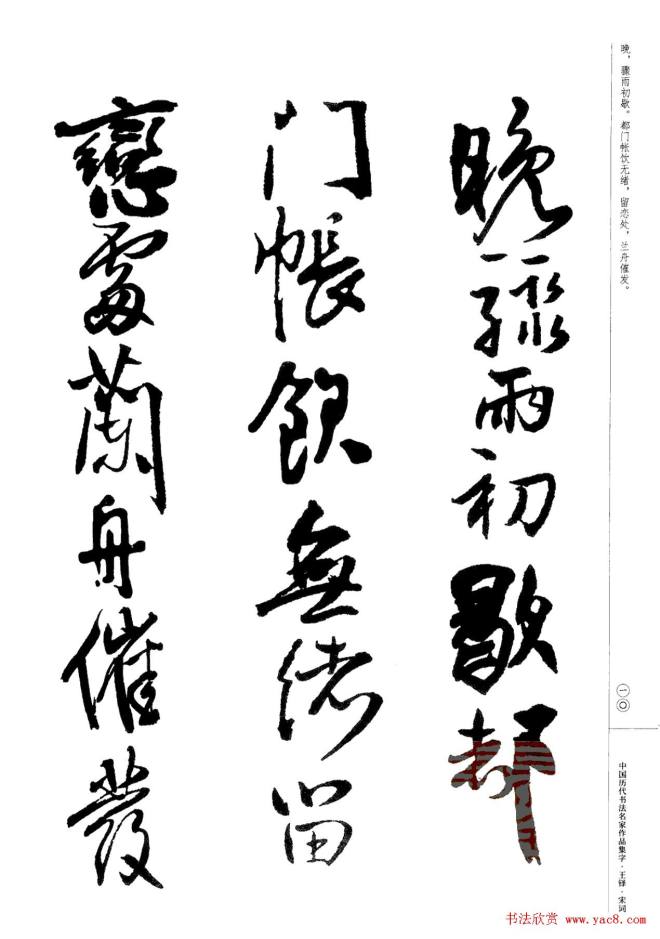 晚骤雨初歇都
门帐饮無绪留
戀處蘭舟催發
晚，骤雨初歇。都门帐饮无绪，留恋处，兰舟催发。
一〇
中国历代书法名家作品集字·王铎·宋词
书法欣赏 www.yac8.com